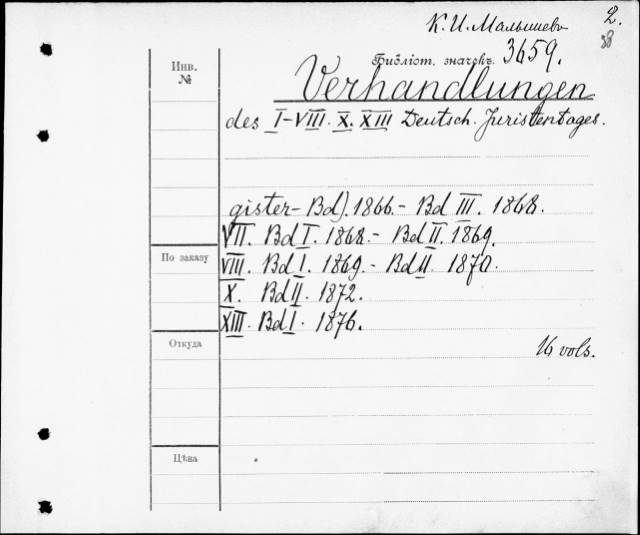 К. И. Малышевъ 2.
38
Инв.
№
Библіот. значекъ 3659.
Verhandlungen
des I-VIII. X. XIII Deutsch. Juristentages.
gister-Bd). 1866.- Bd III. 1868.
VII. Bd I. 1868.- Bd II. 1869.
По заказу
VIII. Bd I. 1869.- Bd II. 1870.
X. Bd II. 1872.
XIII. Bd I. 1876.
Откуда
16 vols.
Цѣна